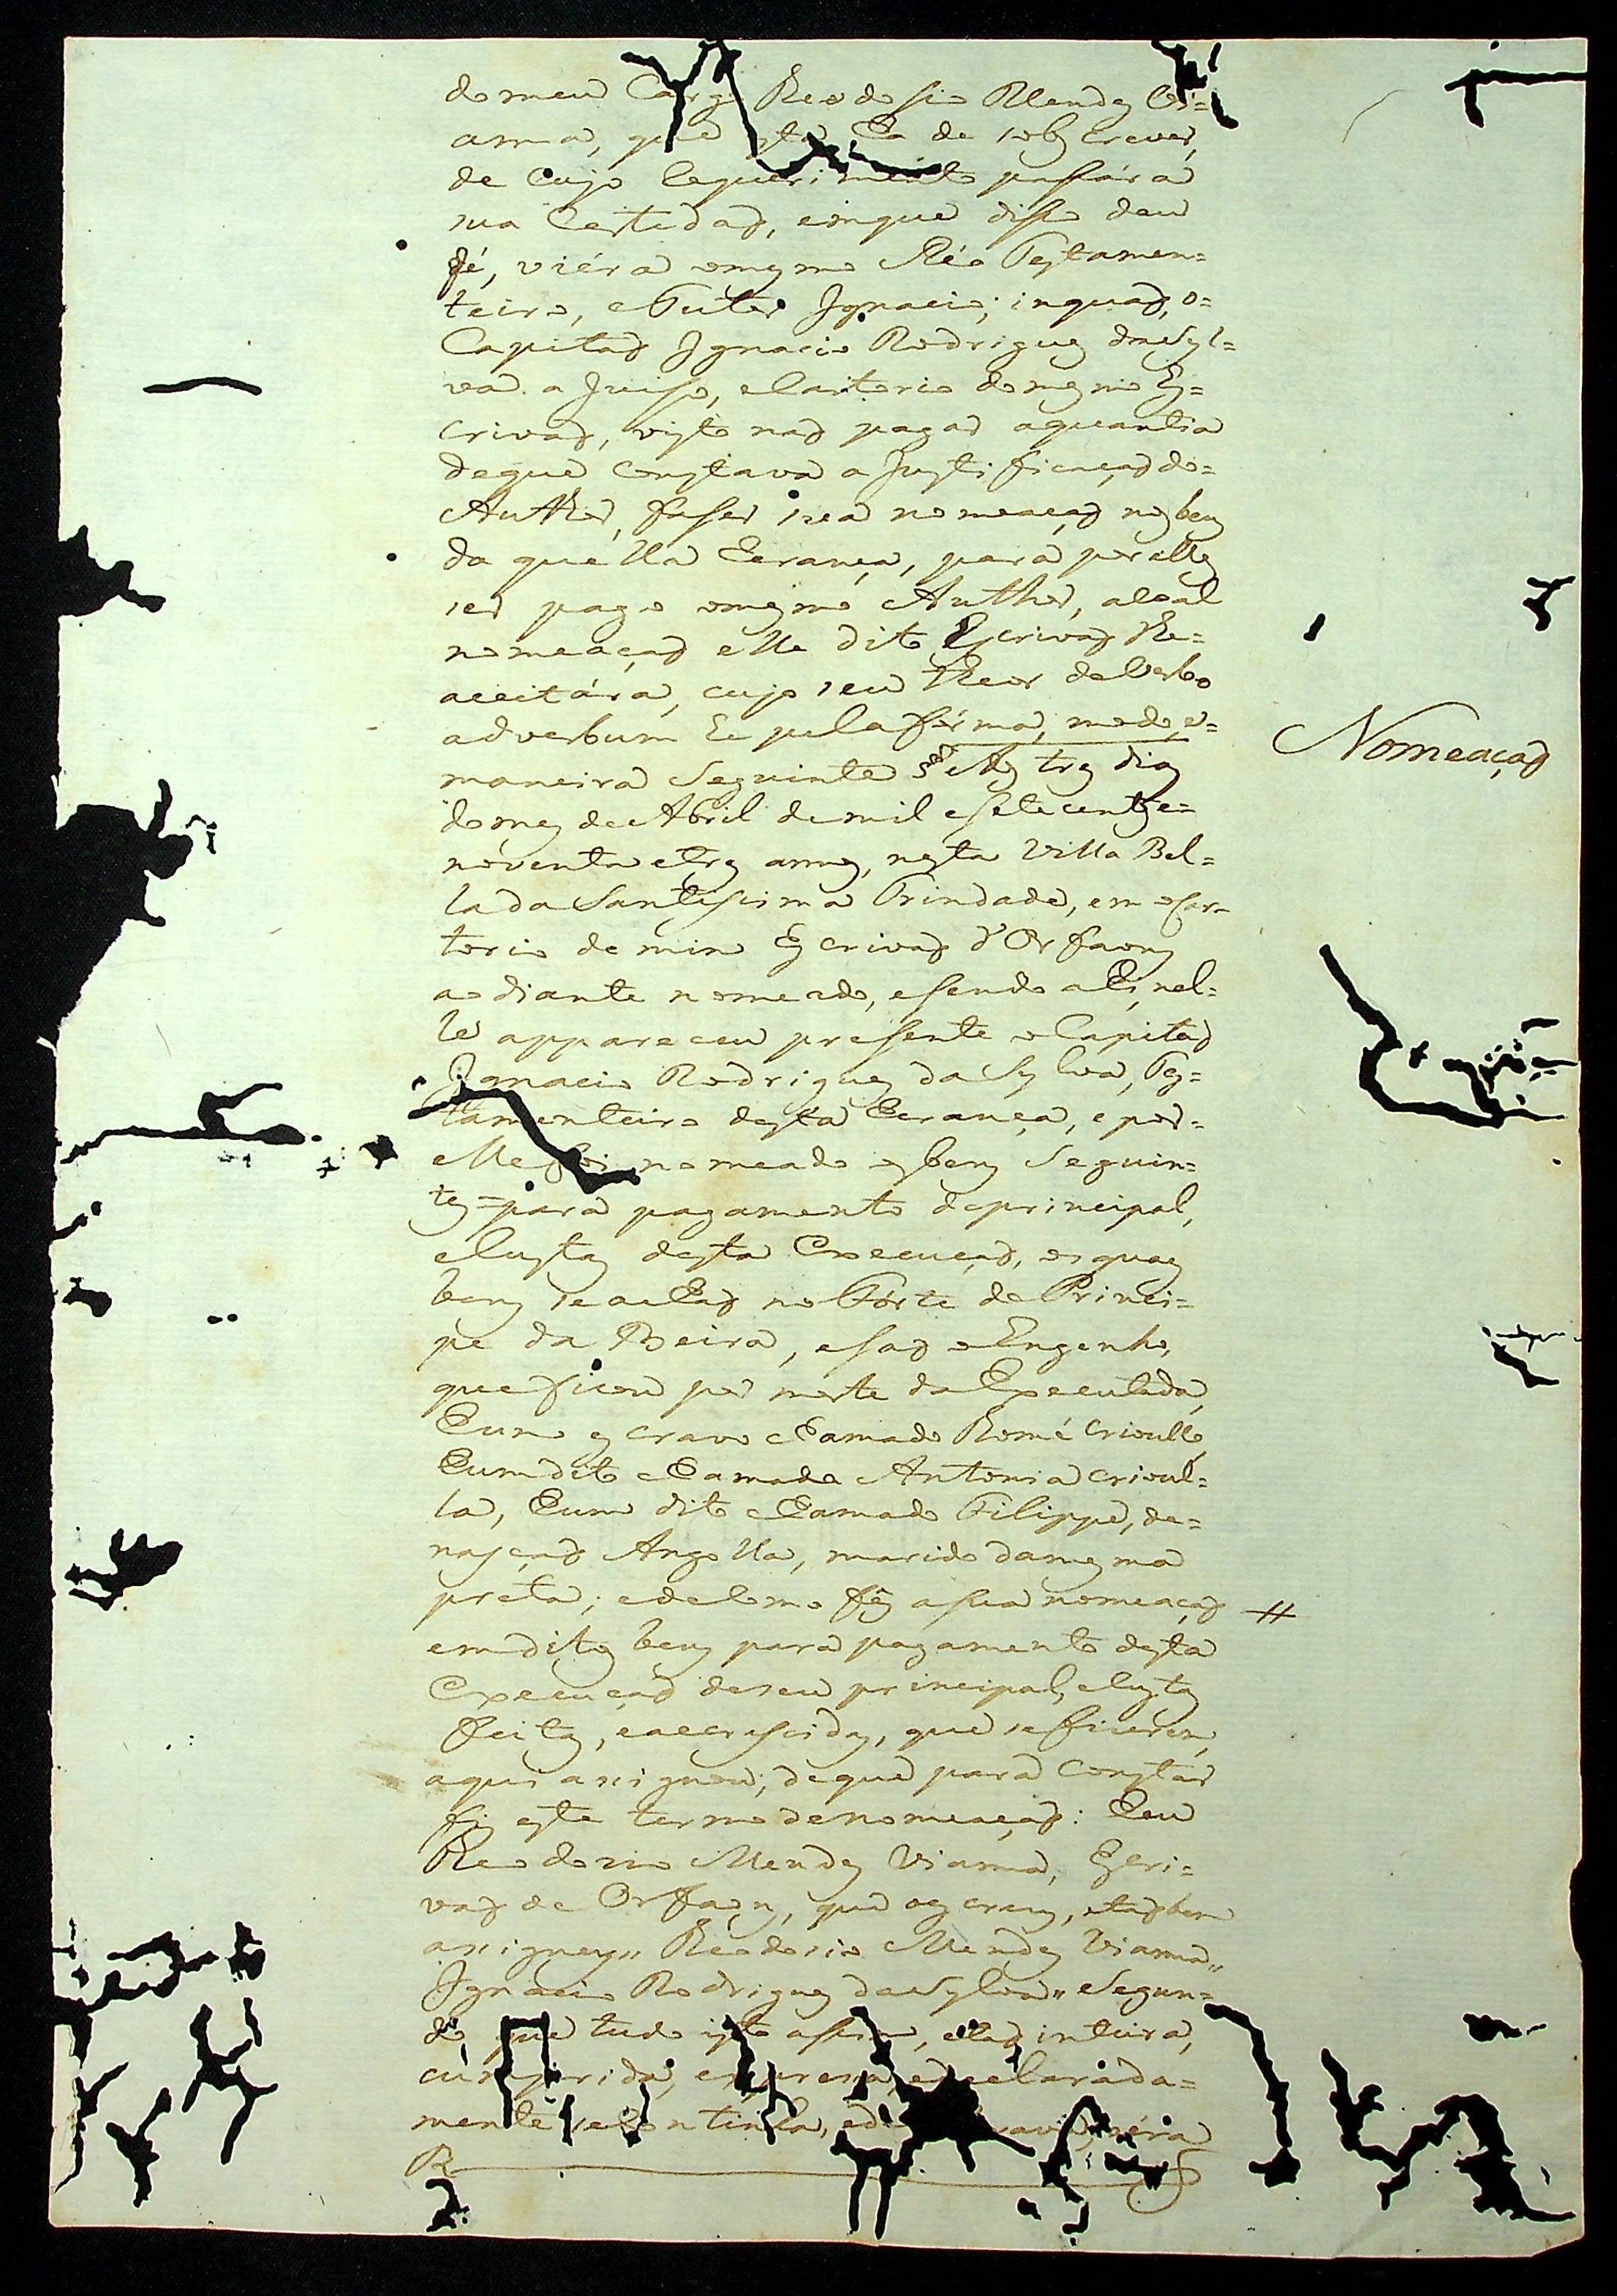 do meu Cargo Theodosio Mendes Vi=
anna, que esta ha de sobescrever,
de cujo requerimento passára a
sua Certidaõ, em que disso deu
fé, viéra o mesmo Réo Testamen=
teiro, e Tutor Ignacio; in quaõ, o=
Capitaõ Ignacio Rodrigues da Syl=
va a Juiso, e Cartorio do mesmo Es=
crivaõ, visto naõ pagar a quantia
de que constava a Justificaçaõ do=
Author, faser sua nomeaçaõ nos bens
da quella herança, para por elles
ser pago o mesmo Author, a coal
nomeaçaõ elle dito Escrivaõ lhe=
aceitára, cujo seu theor de Verbo
ad verbum he pela fórma, modo, e=
maneira Seguinte Aos tres dias
do mes de Abril de mil e sete centos e=
noventa e tres annos, nesta Villa Bel=
la da Santissima Trindade, em o Car=
torio de mim Escrivaõ d'Orfaons
ao diante nomeado, e sendo ahi, nel=
le appareceu presente o Capitaõ
Ignacio Rodrigues da Sylva, Tes=
tamenteiro desta herança, e por=
elle foi nomeado os bens Seguin=
tes = para pagamento do principal,
e Custas desta Execuçaõ, os quaes
bens se achaõ no Fórte do Princi=
pe da Beira, e saõ o Engenho,
que ficou por morte da Executada,
hum escravo chamado Romé crioullo,
hum dito chamada Antonia crioul=
la, hum dito chamado Filippe, de=
nasçaõ Angolla, marido da mesma
preta; e de como fes a sua nomeaçaõ #
em ditos bens para pagamento desta
Execuçaõ de seu principal, e Custas
feitas, e accrescidas, que se ficerem,
aqui assignou; de que para Constar
fis este termo de nomeaçaõ: Eeu
Theodozio Mendes Vianna, Escri=
vaõ de Orfaõns, que o escrevy, e taõbem
assigney,, Theodosio Mendes Vianna,,
Ignacio Rodrigues da Sylva,, Segun=
do, que tudo isto assim, e taõ inteira,
cumprida, expressa, e declarada=
mente se continha, e vava, e éra
R
Nomeaçaõ